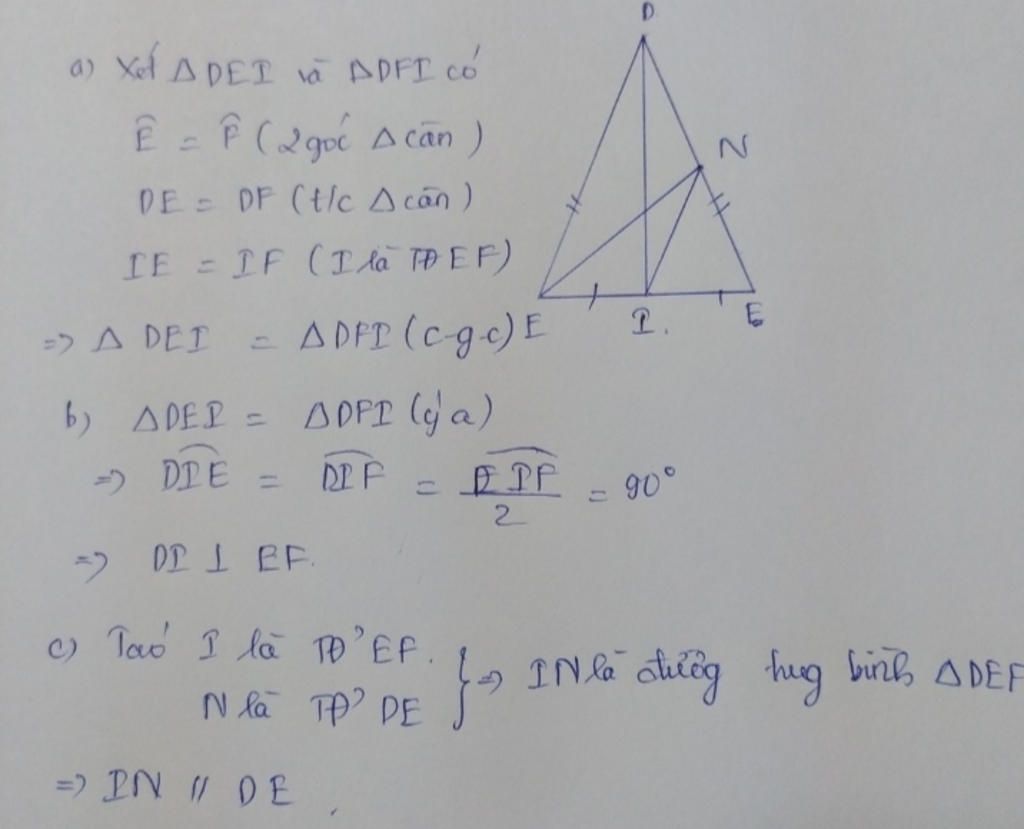 a) Xét Δ DEI và ΔDFI có
Ê = F̂ ( 2 góc Δ cân )
DE = DF (t/c Δ cân )
IE = IF ( I là TĐ EF)
=> Δ DEI = ΔDFI (c-g-c)
b) ΔDEI = ΔDFI (ý a)
=> DIE = DIF = EIF/2 = 90°
=> DI ⊥ EF.
c) Ta có I là TĐ' EF.
N là TĐ' DE } => IN là đường trung bình ΔDEF
=> IN // DE.
D
N
E
I.
E